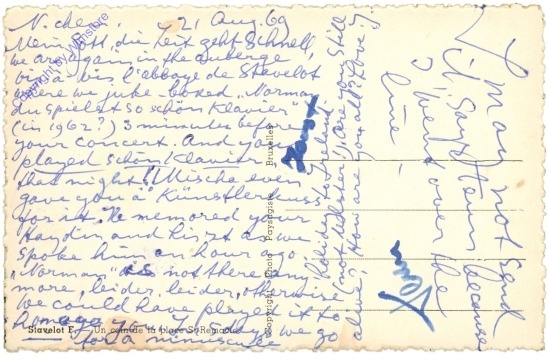 N. chen. 21 Aug. 69
Mein Gott, die Zeit geht schnell
we are again in the auberge
vis à vis l'abbaye de Stavelot
where we juke-boxed „Norman
du spielst so schön Klavier"
(in 1962?) 3 minutes before
your concert. And you
played schön Klavier
that night! Mischa even
gave you a Künstlerkuss
for it. He memored your
Haydn and Liszt as we
spoke him an hour ago
„Norman is not there any
more, leider, leider, otherwise
we could have played it to
homage you. Says we go
for a minuscule
holiday
(not Webster!) are you still
alive? How are you all? Love
I may not send
it says Teun because
I went over the
line -
Joost
Teun
Copyright by Wanstore
Copyright Photo Paysagiste Bruxelles
Stavelot F. Un coin de la place St Remacle